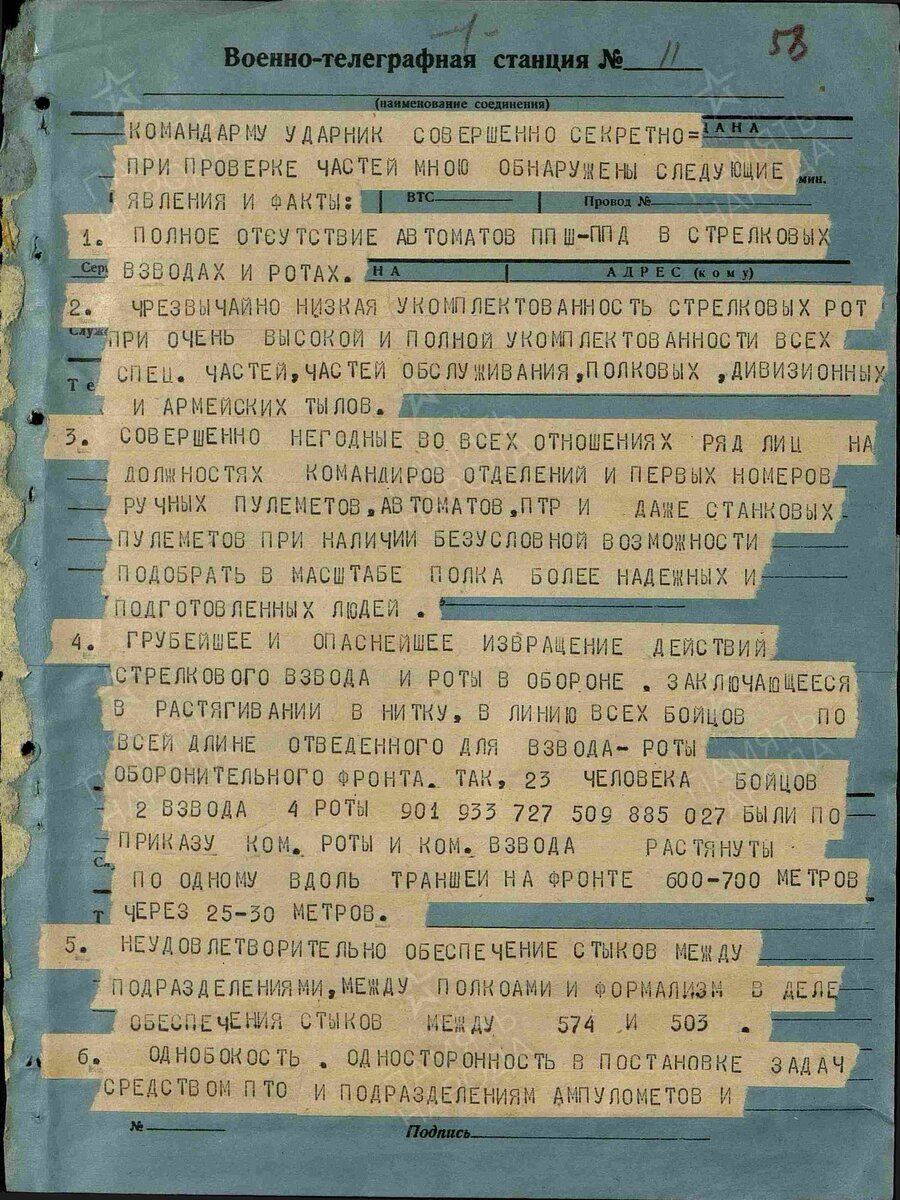 -1-
58
Военно-телеграфная станция № 11
(наименование соединения)
КОМАНДАРМУ УДАРНИК СОВЕРШЕННО СЕКРЕТНО=
ПРИ ПРОВЕРКЕ ЧАСТЕЙ МНОЮ ОБНАРУЖЕНЫ СЛЕДУЮЩИЕ мин.
ЯВЛЕНИЯ И ФАКТЫ: ВТС Провод №
1. ПОЛНОЕ ОТСУТСТВИЕ АВТОМАТОВ ППШ-ППД В СТРЕЛКОВЫХ
ВЗВОДАХ И РОТАХ. НА АДРЕС (кому)
2. ЧРЕЗВЫЧАЙНО НИЗКАЯ УКОМПЛЕКТОВАННОСТЬ СТРЕЛКОВЫХ РОТ
ПРИ ОЧЕНЬ ВЫСОКОЙ И ПОЛНОЙ УКОМПЛЕКТОВАННОСТИ ВСЕХ
СПЕЦ. ЧАСТЕЙ,ЧАСТЕЙ ОБСЛУЖИВАНИЯ,ПОЛКОВЫХ ,ДИВИЗИОННЫХ
И АРМЕЙСКИХ ТЫЛОВ.
3. СОВЕРШЕННО НЕГОДНЫЕ ВО ВСЕХ ОТНОШЕНИЯХ РЯД ЛИЦ НА
ДОЛЖНОСТЯХ КОМАНДИРОВ ОТДЕЛЕНИЙ И ПЕРВЫХ НОМЕРОВ
РУЧНЫХ ПУЛЕМЕТОВ,АВТОМАТОВ,ПТР И ДАЖЕ СТАНКОВЫХ
ПУЛЕМЕТОВ ПРИ НАЛИЧИИ БЕЗУСЛОВНОЙ ВОЗМОЖНОСТИ
ПОДОБРАТЬ В МАСШТАБЕ ПОЛКА БОЛЕЕ НАДЕЖНЫХ И
ПОДГОТОВЛЕННЫХ ЛЮДЕЙ .
4. ГРУБЕЙШЕЕ И ОПАСНЕЙШЕЕ ИЗВРАЩЕНИЕ ДЕЙСТВИЙ
СТРЕЛКОВОГО ВЗВОДА И РОТЫ В ОБОРОНЕ . ЗАКЛЮЧАЮЩЕЕСЯ
В РАСТЯГИВАНИИ В НИТКУ, В ЛИНИЮ ВСЕХ БОЙЦОВ ПО
ВСЕЙ ДЛИНЕ ОТВЕДЕННОГО ДЛЯ ВЗВОДА- РОТЫ
ОБОРОНИТЕЛЬНОГО ФРОНТА. ТАК, 23 ЧЕЛОВЕКА БОЙЦОВ
2 ВЗВОДА 4 РОТЫ 901 933 727 509 885 027 БЫЛИ ПО
ПРИКАЗУ КОМ. РОТЫ И КОМ. ВЗВОДА РАСТЯНУТЫ
ПО ОДНОМУ ВДОЛЬ ТРАНШЕИ НА ФРОНТЕ 600-700 МЕТРОВ
ЧЕРЕЗ 25-30 МЕТРОВ.
5. НЕУДОВЛЕТВОРИТЕЛЬНО ОБЕСПЕЧЕНИЕ СТЫКОВ МЕЖДУ
ПОДРАЗДЕЛЕНИЯМИ,МЕЖДУ ПОЛКОАМИ И ФОРМАЛИЗМ В ДЕЛЕ
ОБЕСПЕЧЕНИЯ СТЫКОВ МЕЖДУ 574 И 503 .
6. ОДНОБОКОСТЬ . ОДНОСТОРОННОСТЬ В ПОСТАНОВКЕ ЗАДАЧ
СРЕДСТВОМ ПТО И ПОДРАЗДЕЛЕНИЯМ АМПУЛОМЕТОВ И
№ Подпись